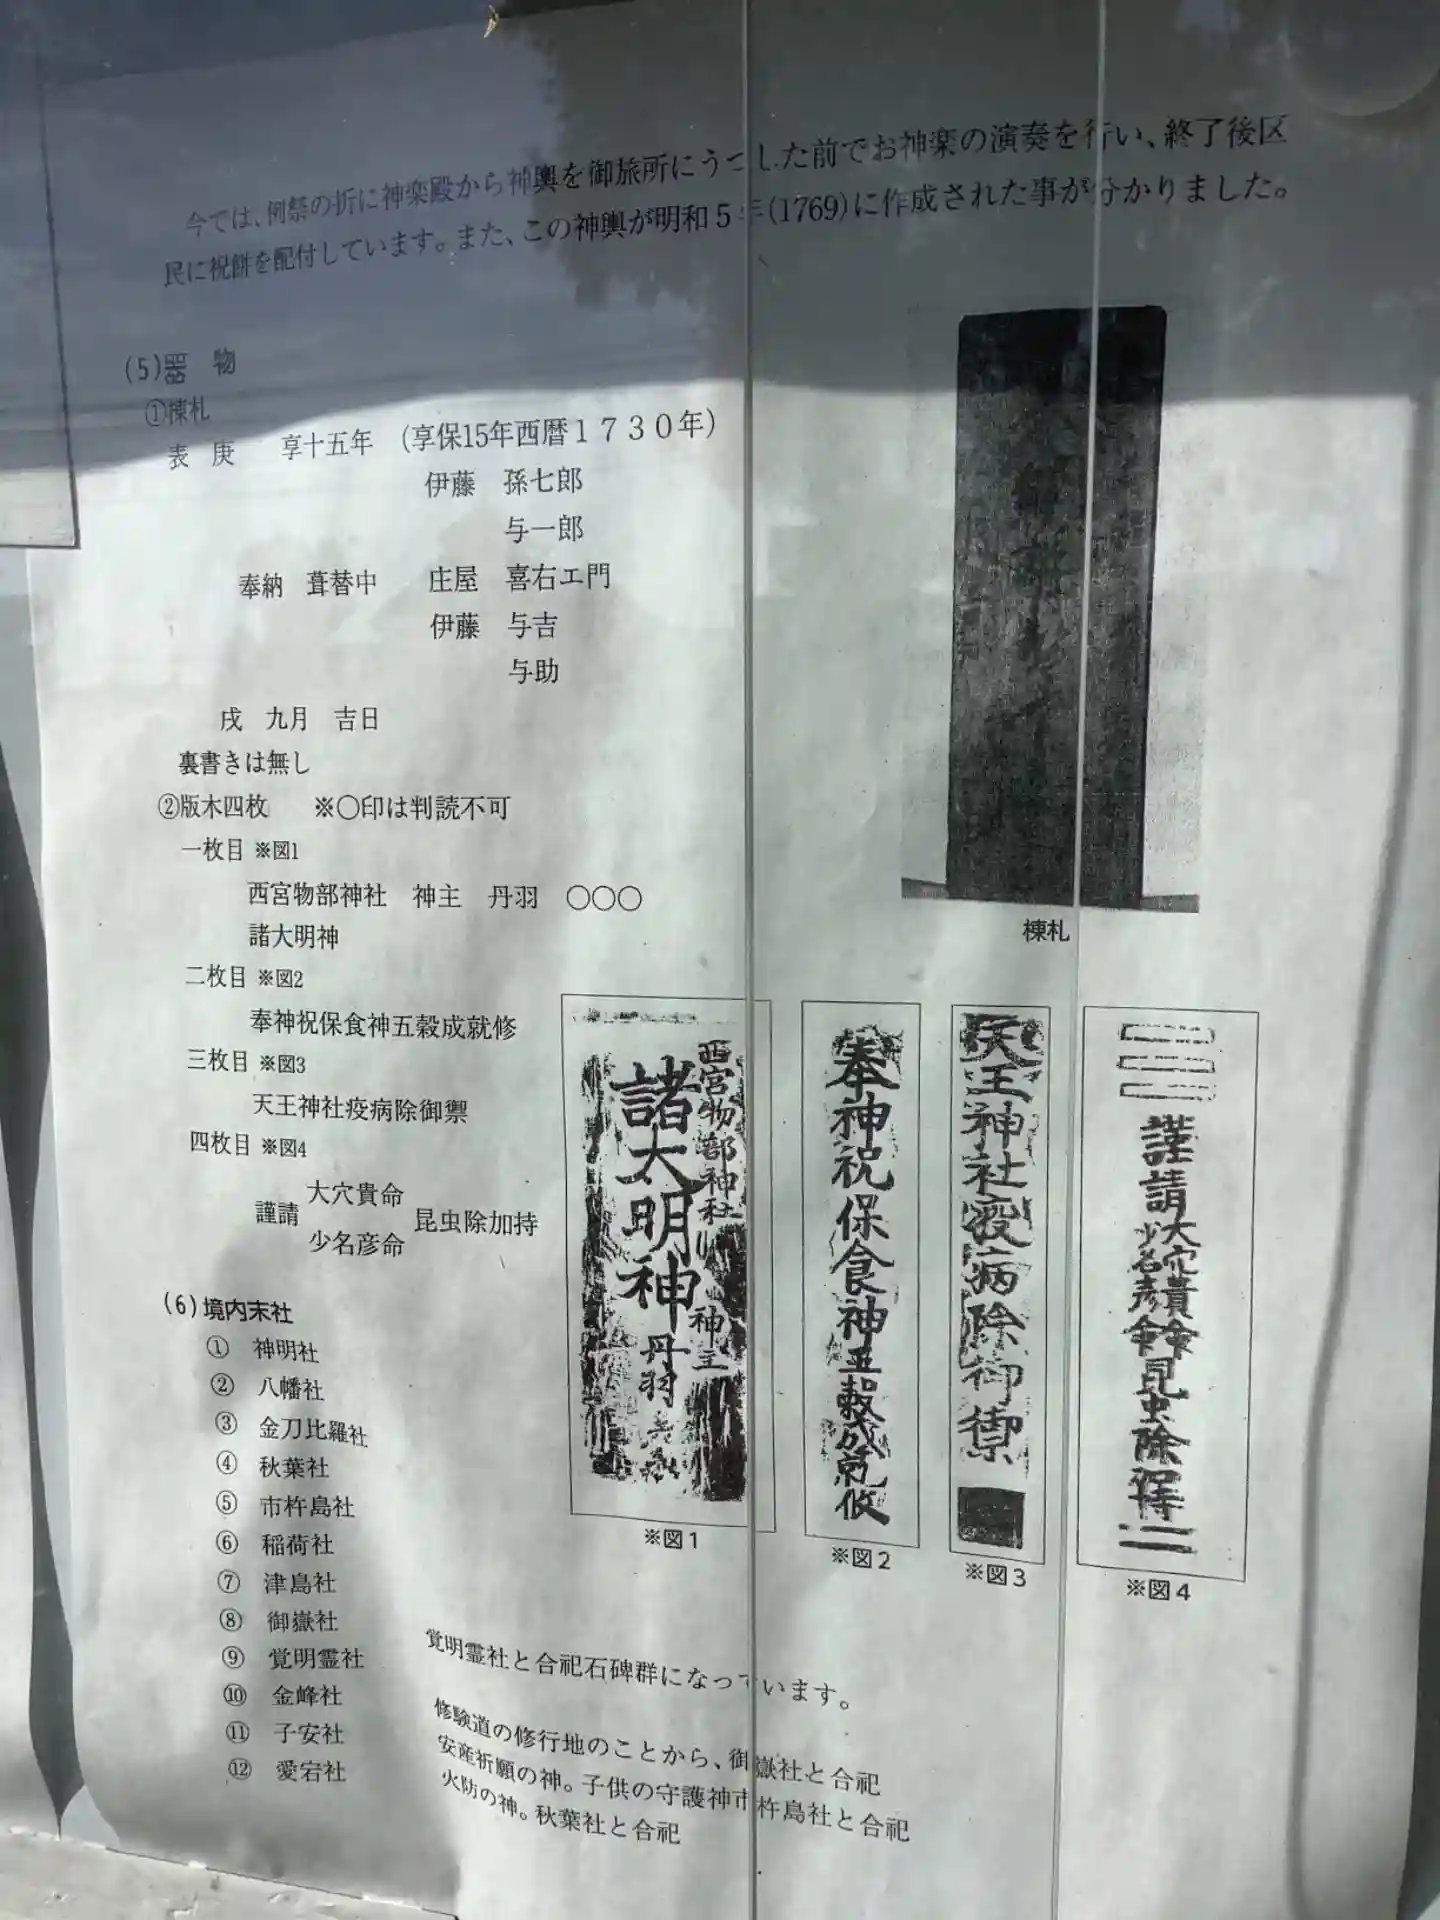 今では、例祭の折に神楽殿から神輿を御旅所にうつした前でお神楽の演奏を行い、終了後区
民に祝餅を配付しています。また、この神輿が明和5年(1769)に作成された事が分かりました。
(5)器 物
①棟札
表 庚 享十五年 (享保15年西暦1730年)
伊藤 孫七郎
与一郎
奉納 葺替中 庄屋 喜右エ門
伊藤 与吉
与助
戌 九月 吉日
裏書きは無し
②版木四枚 ※〇印は判読不可
一枚目 ※図1
西宮物部神社 神主 丹羽 〇〇〇
諸大明神
二枚目 ※図2
奉神祝保食神五穀成就修
三枚目 ※図3
天王神社疫病除御禦
四枚目 ※図4
謹請 大穴貴命 少名彦命 昆虫除加持
棟札
西宮物部神社
諸大明神
神主
丹羽
※図1
奉神祝保食神五穀成就修
※図2
天王神社疫病除御禦
※図3
謹請 大穴貴命 少名彦命 昆虫除
※図4
(6)境内末社
① 神明社
② 八幡社
③ 金刀比羅社
④ 秋葉社
⑤ 市杵島社
⑥ 稲荷社
⑦ 津島社
⑧ 御嶽社
⑨ 覚明霊社 覚明霊社と合祀石碑群になっています。
⑩ 金峰社 修験道の修行地のことから、御嶽社と合祀
⑪ 子安社 安産祈願の神。子供の守護神市杵島社と合祀
⑫ 愛宕社 火防の神。秋葉社と合祀